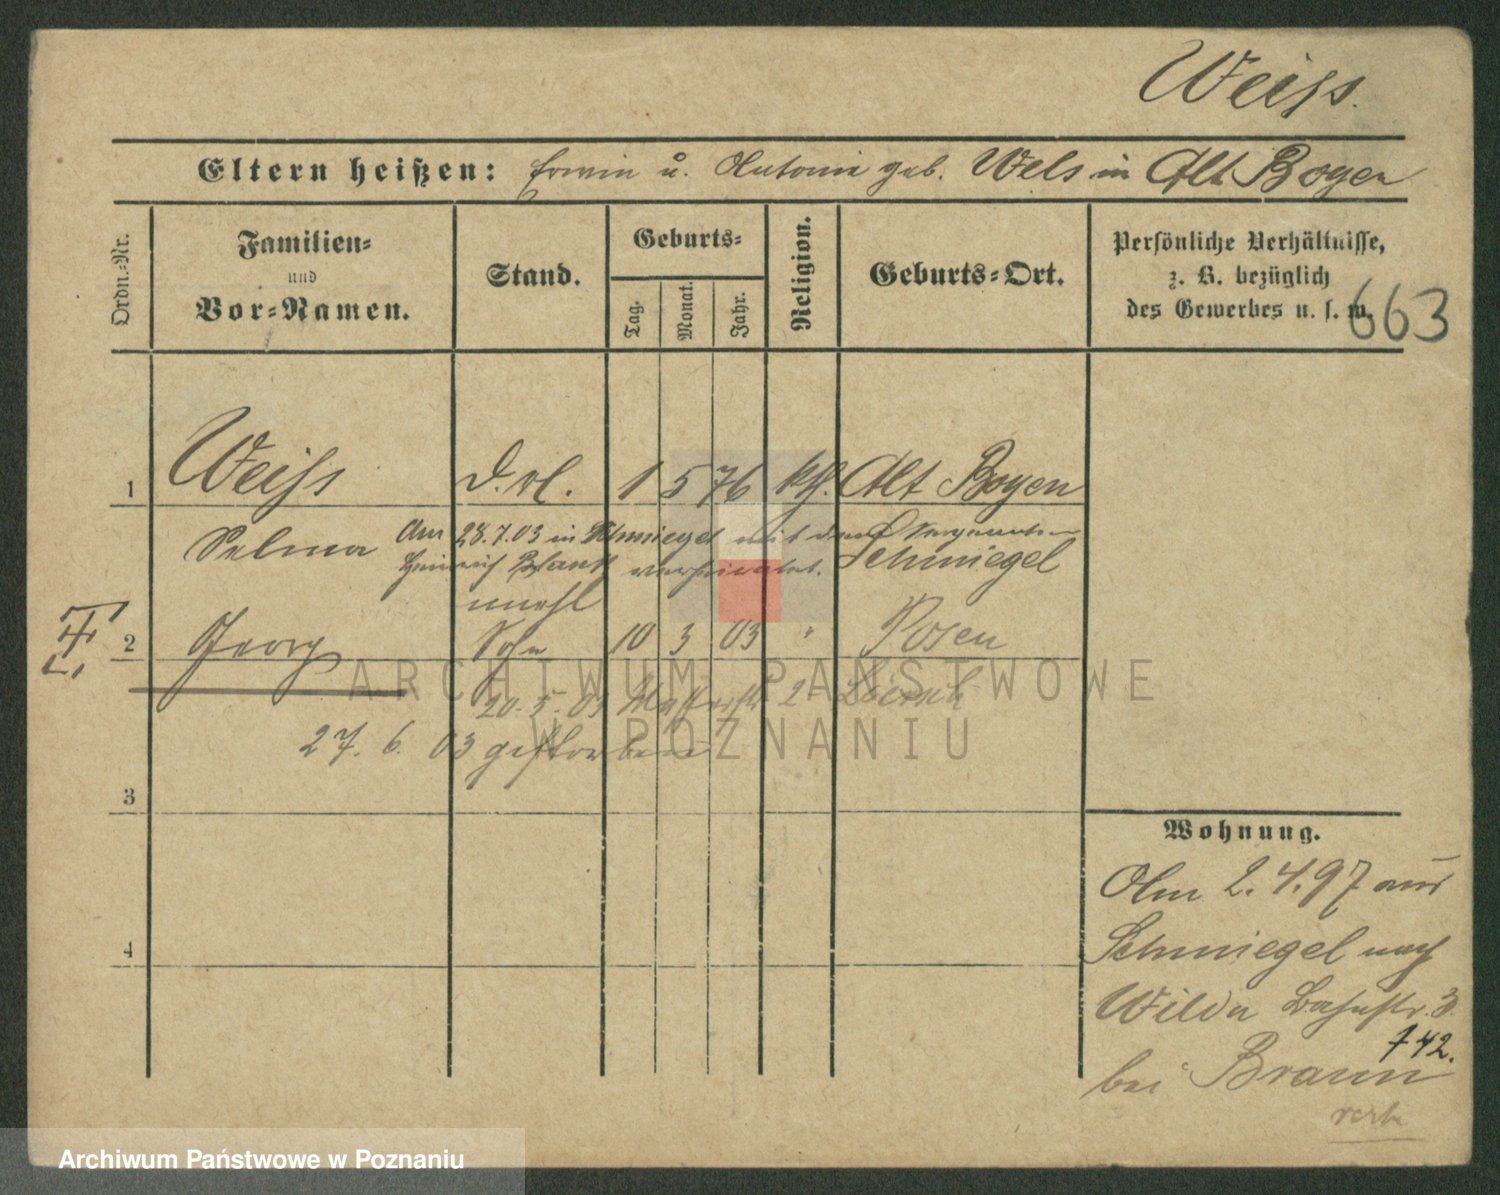 Weiss.
Eltern heißen: Erwin u. Antonie geb. Wels in Alt Boyen
Ordn.-Nr.
Familien-
und
Vor-Namen.
Stand.
Geburts-
Tag.
Monat.
Jahr.
Religion.
Geburts-Ort.
Persönliche Verhältnisse,
z. B. bezüglich
des Gewerbes u. s. w.
663
1 Weiss 1 5 76 kth. Alt Boyen
Selma
Am 28.7.03 in Schmiegel mit dem
Heinrich verheiratet.
Schmiegel
unehl
2 Georg Sohn 10 3 03 " Posen
20.5.03
27. 6. 03 gestorben
3
4
Wohnung.
Am 2.4.97 aus
Schmiegel nach
Wilda Bahnstr. 3
742.
bei Braun
ARCHIWUM PAŃSTWOWE
W POZNANIU
Archiwum Państwowe w Poznaniu